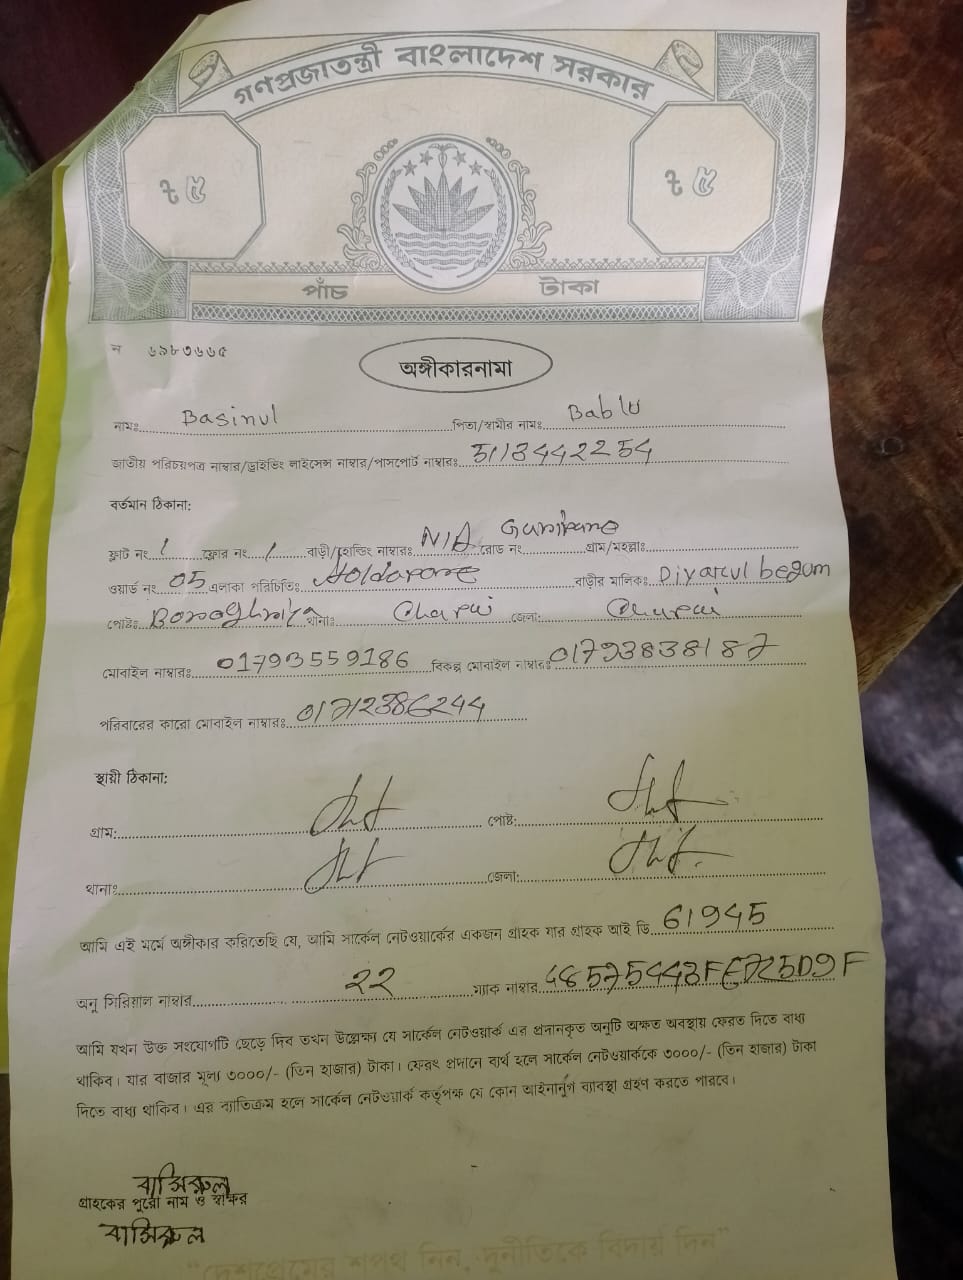 গণপ্রজাতন্ত্রী বাংলাদেশ সরকার
৳ ৫ ৳ ৫
পাঁচ টাকা
ন ৬৯৮৩৬৬৫
অঙ্গীকারনামা
নামঃ Basinul পিতা/স্বামীর নামঃ Bablu
জাতীয় পরিচয়পত্র নাম্বার/ড্রাইভিং লাইসেন্স নাম্বার/পাসপোর্ট নাম্বারঃ 5113442254
বর্তমান ঠিকানা:
ফ্লাট নং 1 ফ্লোর নং 1 বাড়ী/হোল্ডিং নাম্বারঃ N/A রোড নং গ্রাম/মহল্লাঃ
ওয়ার্ড নং 05 এলাকা পরিচিতিঃ বাড়ীর মালিকঃ Diyarul begum
পোষ্টঃ থানাঃ Chapai জেলা: Chapai
মোবাইল নাম্বারঃ 01793559186 বিকল্প মোবাইল নাম্বারঃ 01793838187
পরিবারের কারো মোবাইল নাম্বারঃ 01712386244
স্থায়ী ঠিকানা:
গ্রাম: পোষ্ট:
থানাঃ জেলা:
আমি এই মর্মে অঙ্গীকার করিতেছি যে, আমি সার্কেল নেটওয়ার্কের একজন গ্রাহক যার গ্রাহক আই ডি 61945
অনু সিরিয়াল নাম্বার 22 ম্যাক নাম্বার
আমি যখন উক্ত সংযোগটি ছেড়ে দিব তখন উল্লেক্ষা যে সার্কেল নেটওয়ার্ক এর প্রদানকৃত অনুটি অক্ষত অবস্থায় ফেরত দিতে বাধ্য
থাকিব। যার বাজার মূল্য ৩০০০/- (তিন হাজার) টাকা। ফেরৎ প্রদানে ব্যর্থ হলে সার্কেল নেটওয়ার্ককে ৩০০০/- (তিন হাজার) টাকা
দিতে বাধ্য থাকিব। এর ব্যতিক্রম হলে সার্কেল নেটওয়ার্ক কর্তৃপক্ষ যে কোন আইনানুগ ব্যাবস্থা গ্রহণ করতে পারবে।
বাসিরুল
গ্রাহকের পুরো নাম ও স্বাক্ষর
বাসিরুল
“দেশপ্রেমের শপথ নিন, দুর্নীতিকে বিদায় দিন”